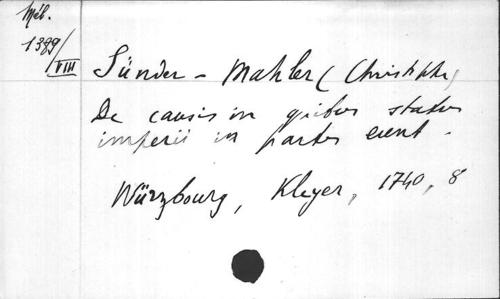 Mél.
1389/VIII
Sünder - Mahler (Christoph)
De causis in quibus status
imperii in partes eunt -
Würzbourg, Kleyer, 1740, 8